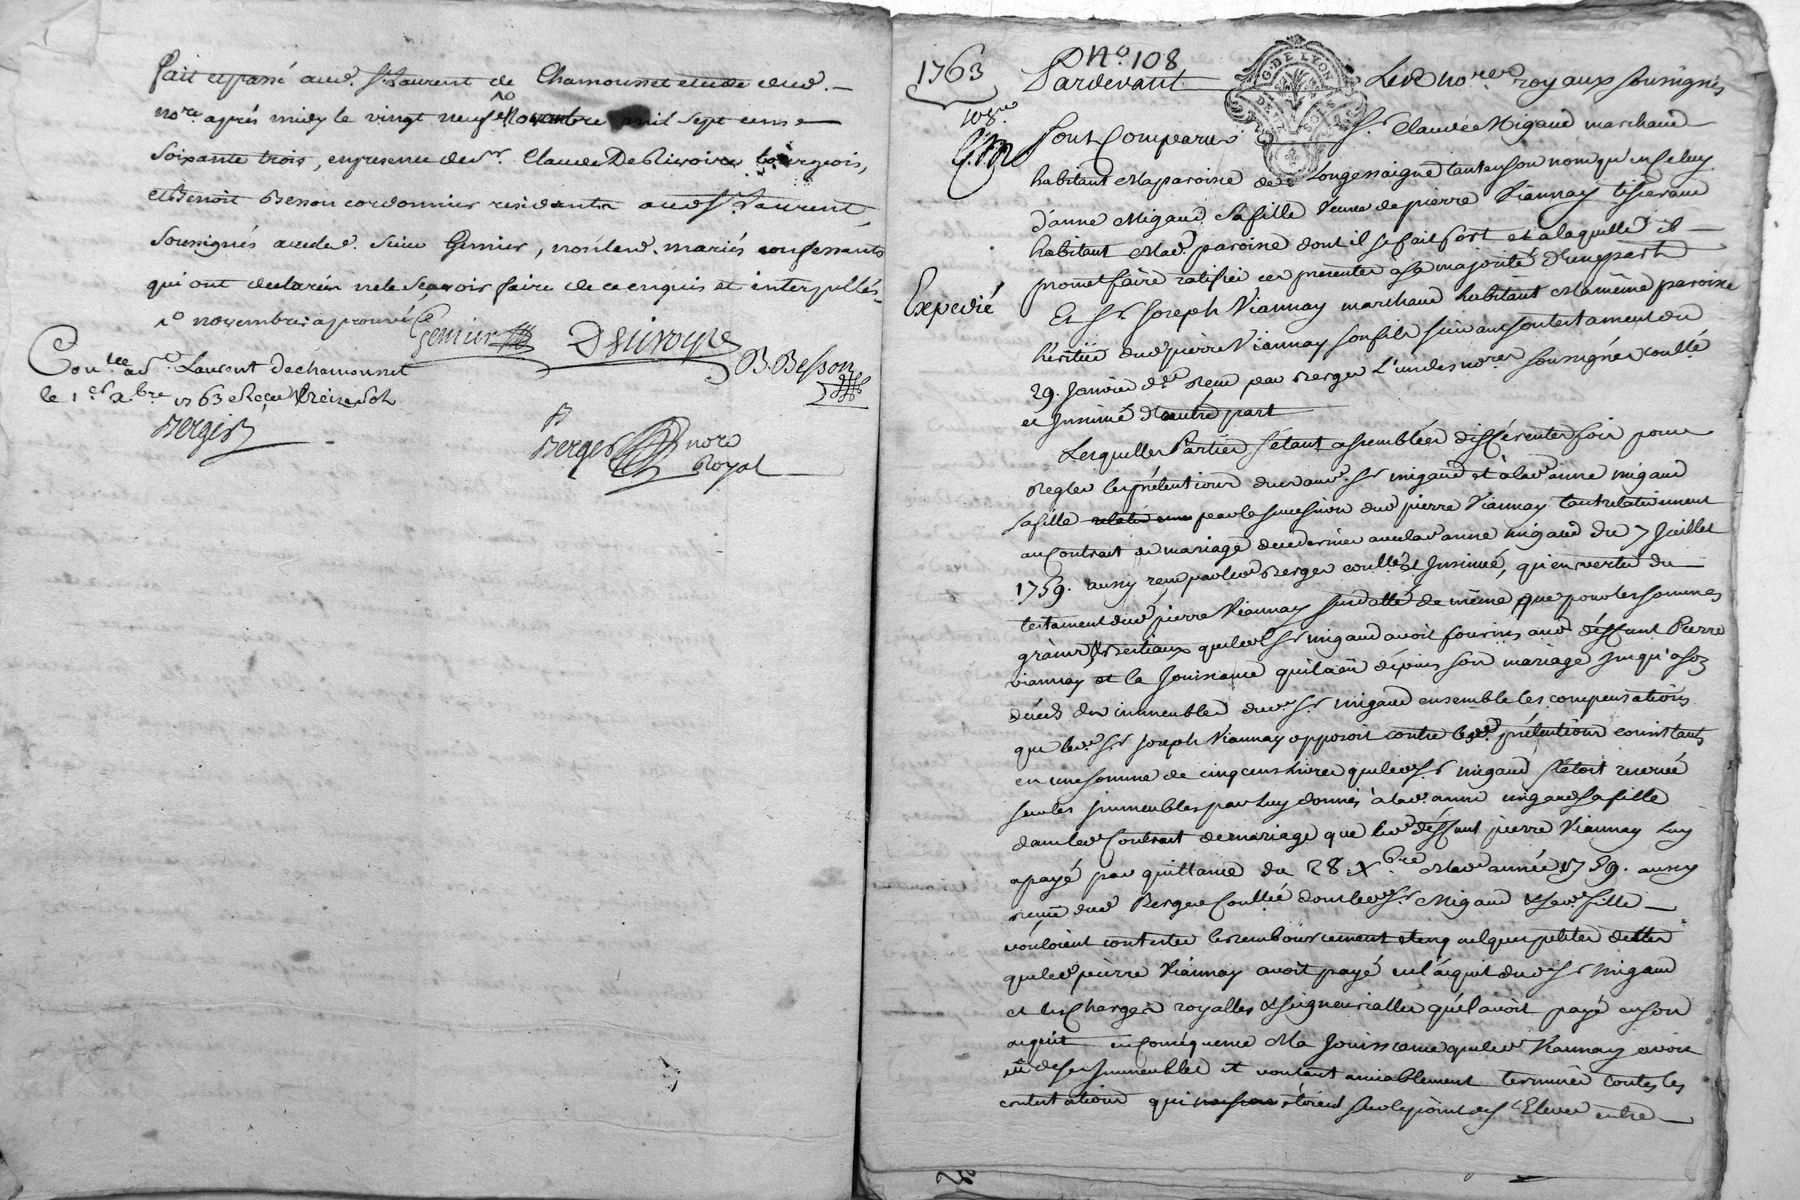 fait et passé aud. St Laurent de Chamousset etude dud.
nore après midy le vingt neuf 9bre mil sept cens
soixante trois, en presence de sr. Claude Bourgeois,
et Benoit Besson cordonnier residants aud St Laurent,
soussignés avec led. sieur Genier, non led. mariés confessants
qui ont declarés ne le sçavoir faire de ce enquis et interpellés.
novembre aprouvé
Genier
B. Besson
Con.lee a St. Laurent de chamousset
le 1er xbre 1763 Reçu treize sols
Berger
Berger nore
Royal
1763
No. 108
108e
Expedié
Pardevant Les nores royaux soussignés
sont Comparus Sr. Claude Migaud marchand
habitant en la paroisse de Longessaigne tant en son nom qu'en celuy
d'anne Migaud sa fille veuve de pierre Viannay tisserand
habitant en lad. paroisse dont il se fait fort et a laquelle il
promet faire ratifier ces presentes a sa majorité d'une part
Et Sr Joseph Viannay marchand habitant en la même paroisse
héritier dud. pierre Viannay son fils suivant son testament du
29. Janvier der. Reçu par Berger L'un des nores soussignés coullé
et Insinué d'autre part
Lesquelles Parties s'étant assemblées differentes fois pour
Regler les prétentions dud. Sr migaud et à lad. anne migaud
sa fille sur la succession dud pierre Viannay tant relativement
au Contrat de mariage de ce dernier avec lad anne migaud du 7 Juillet
1759. aussy reçu par led Berger coullé et Insinué, qu'en vertu du
testament dud pierre Viannay susdatté de même que pour les sommes
grains & bestiaux que led. Sr migaud avoit fournis aud déffunt Pierre
viannay et la Jouissance qu'il a eü depuis son mariage jusqu'a son
décés des immeubles dud. Sr migaud ensemble les compensations
que led. Sr Joseph Viannay opposoit contre lesd. prétentions consistants
en une somme de cinq cens livres que led. Sr migaud s'étoit reservée
sur les immeubles par luy donnés à lad. anne migaud sa fille
dans led Contrat de mariage que led déffunt pierre Viannay luy
a payé par quittance du 28 Xbre de lad. année 1759. aussy
reçue dud Berger Coullée dont led. Sr. Migaud & sad. fille
vouloient contester le remboursement et en quelques petites dettes
que led pierre Viannay avoit payé en l'acquit dud. Sr Migaud
et les Charges royalles & seigneurialles qu'il avoit payé en son
acquit en consequence de la Jouissance que led Viannay avoit
eü de ses Immeubles et voulant amiablement terminer toutes les
contestations qui étoient sur le point de s'Elever entre